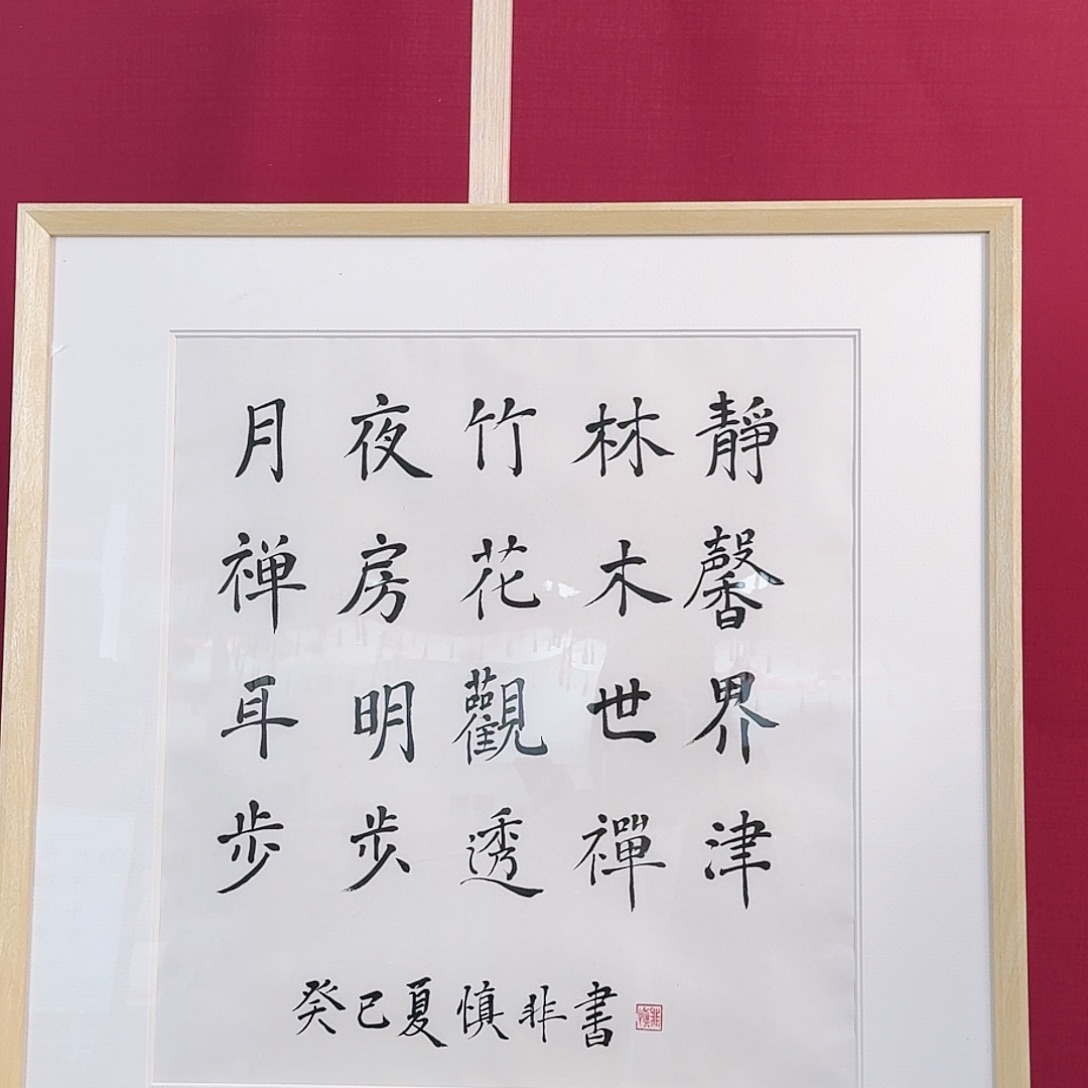 月夜竹林靜
禅房花木馨
耳明觀世界
步步透禪津
癸巳夏慎非書
慎非